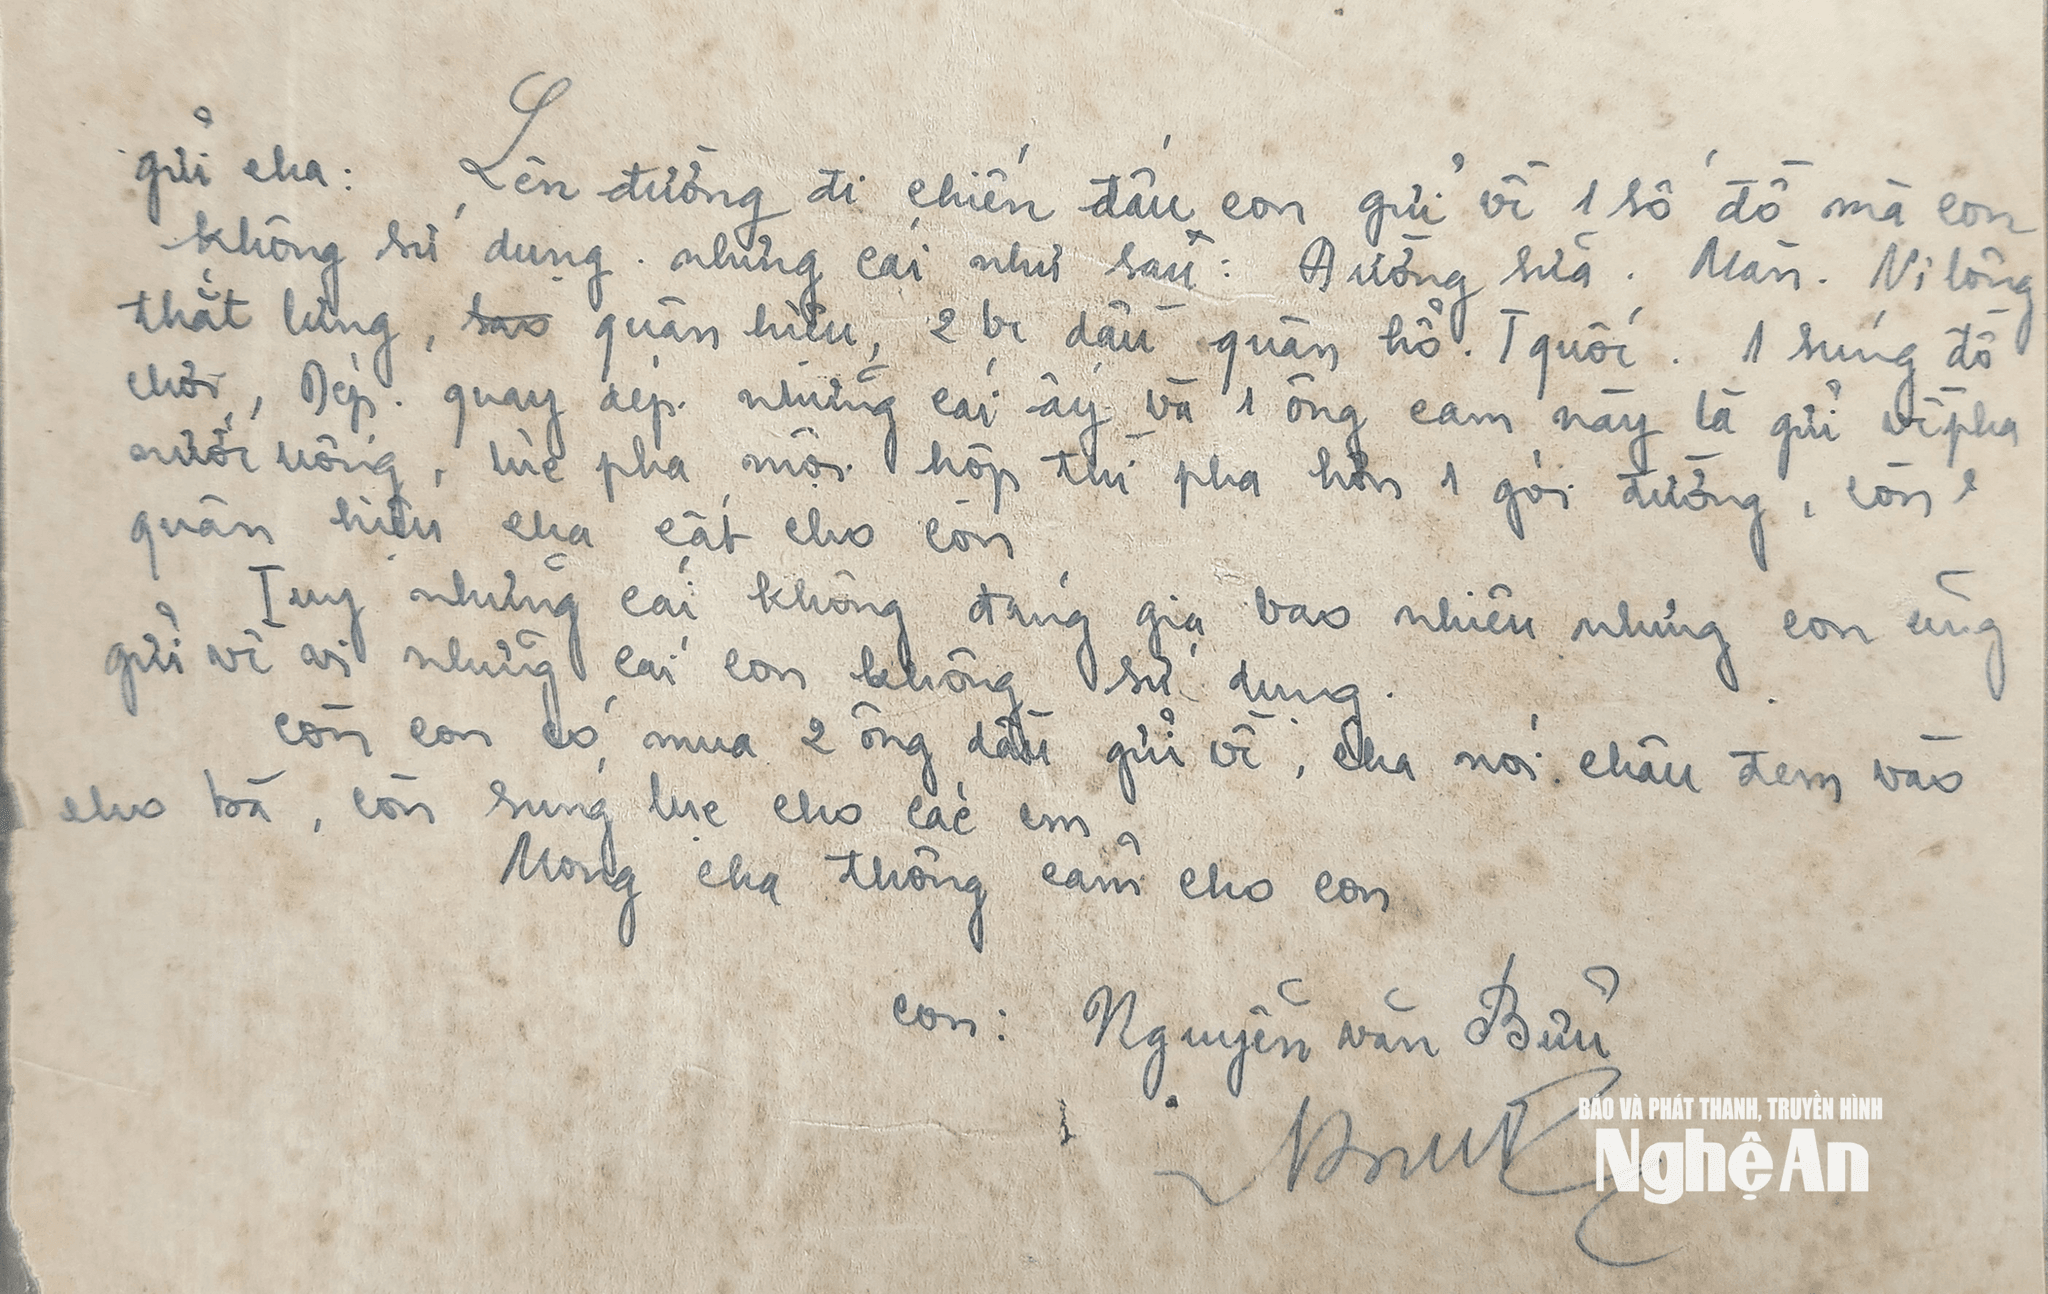 gửi cha: Lên đường đi chiến đấu con gửi về 1 số đồ mà con
không sử dụng. những cái như sau: Đường sữa. Màn. Ni lông
thắt lưng, sao quân hiệu, 2 ve dầu quân hổ. T quốc. 1 súng đồ
chơi, Dép. quay dép. những cái ấy và 1 ống cam này là gửi về pha
nước uống, lúc pha mội hộp thì pha hơn 1 gói đường, còn
quân hiệu cha cất cho con
Tuy những cái không đáng giá bao nhiêu nhưng con cũng
gửi về vì những cái con không sử dụng.
Còn con có mua 2 ống dầu gửi về, cha nói châu đem vào
cho bà, còn súng lục cho các em
Mong cha thông cảm cho con
con: Nguyễn văn Bửu
BÁO VÀ PHÁT THANH, TRUYỀN HÌNH
Nghệ An